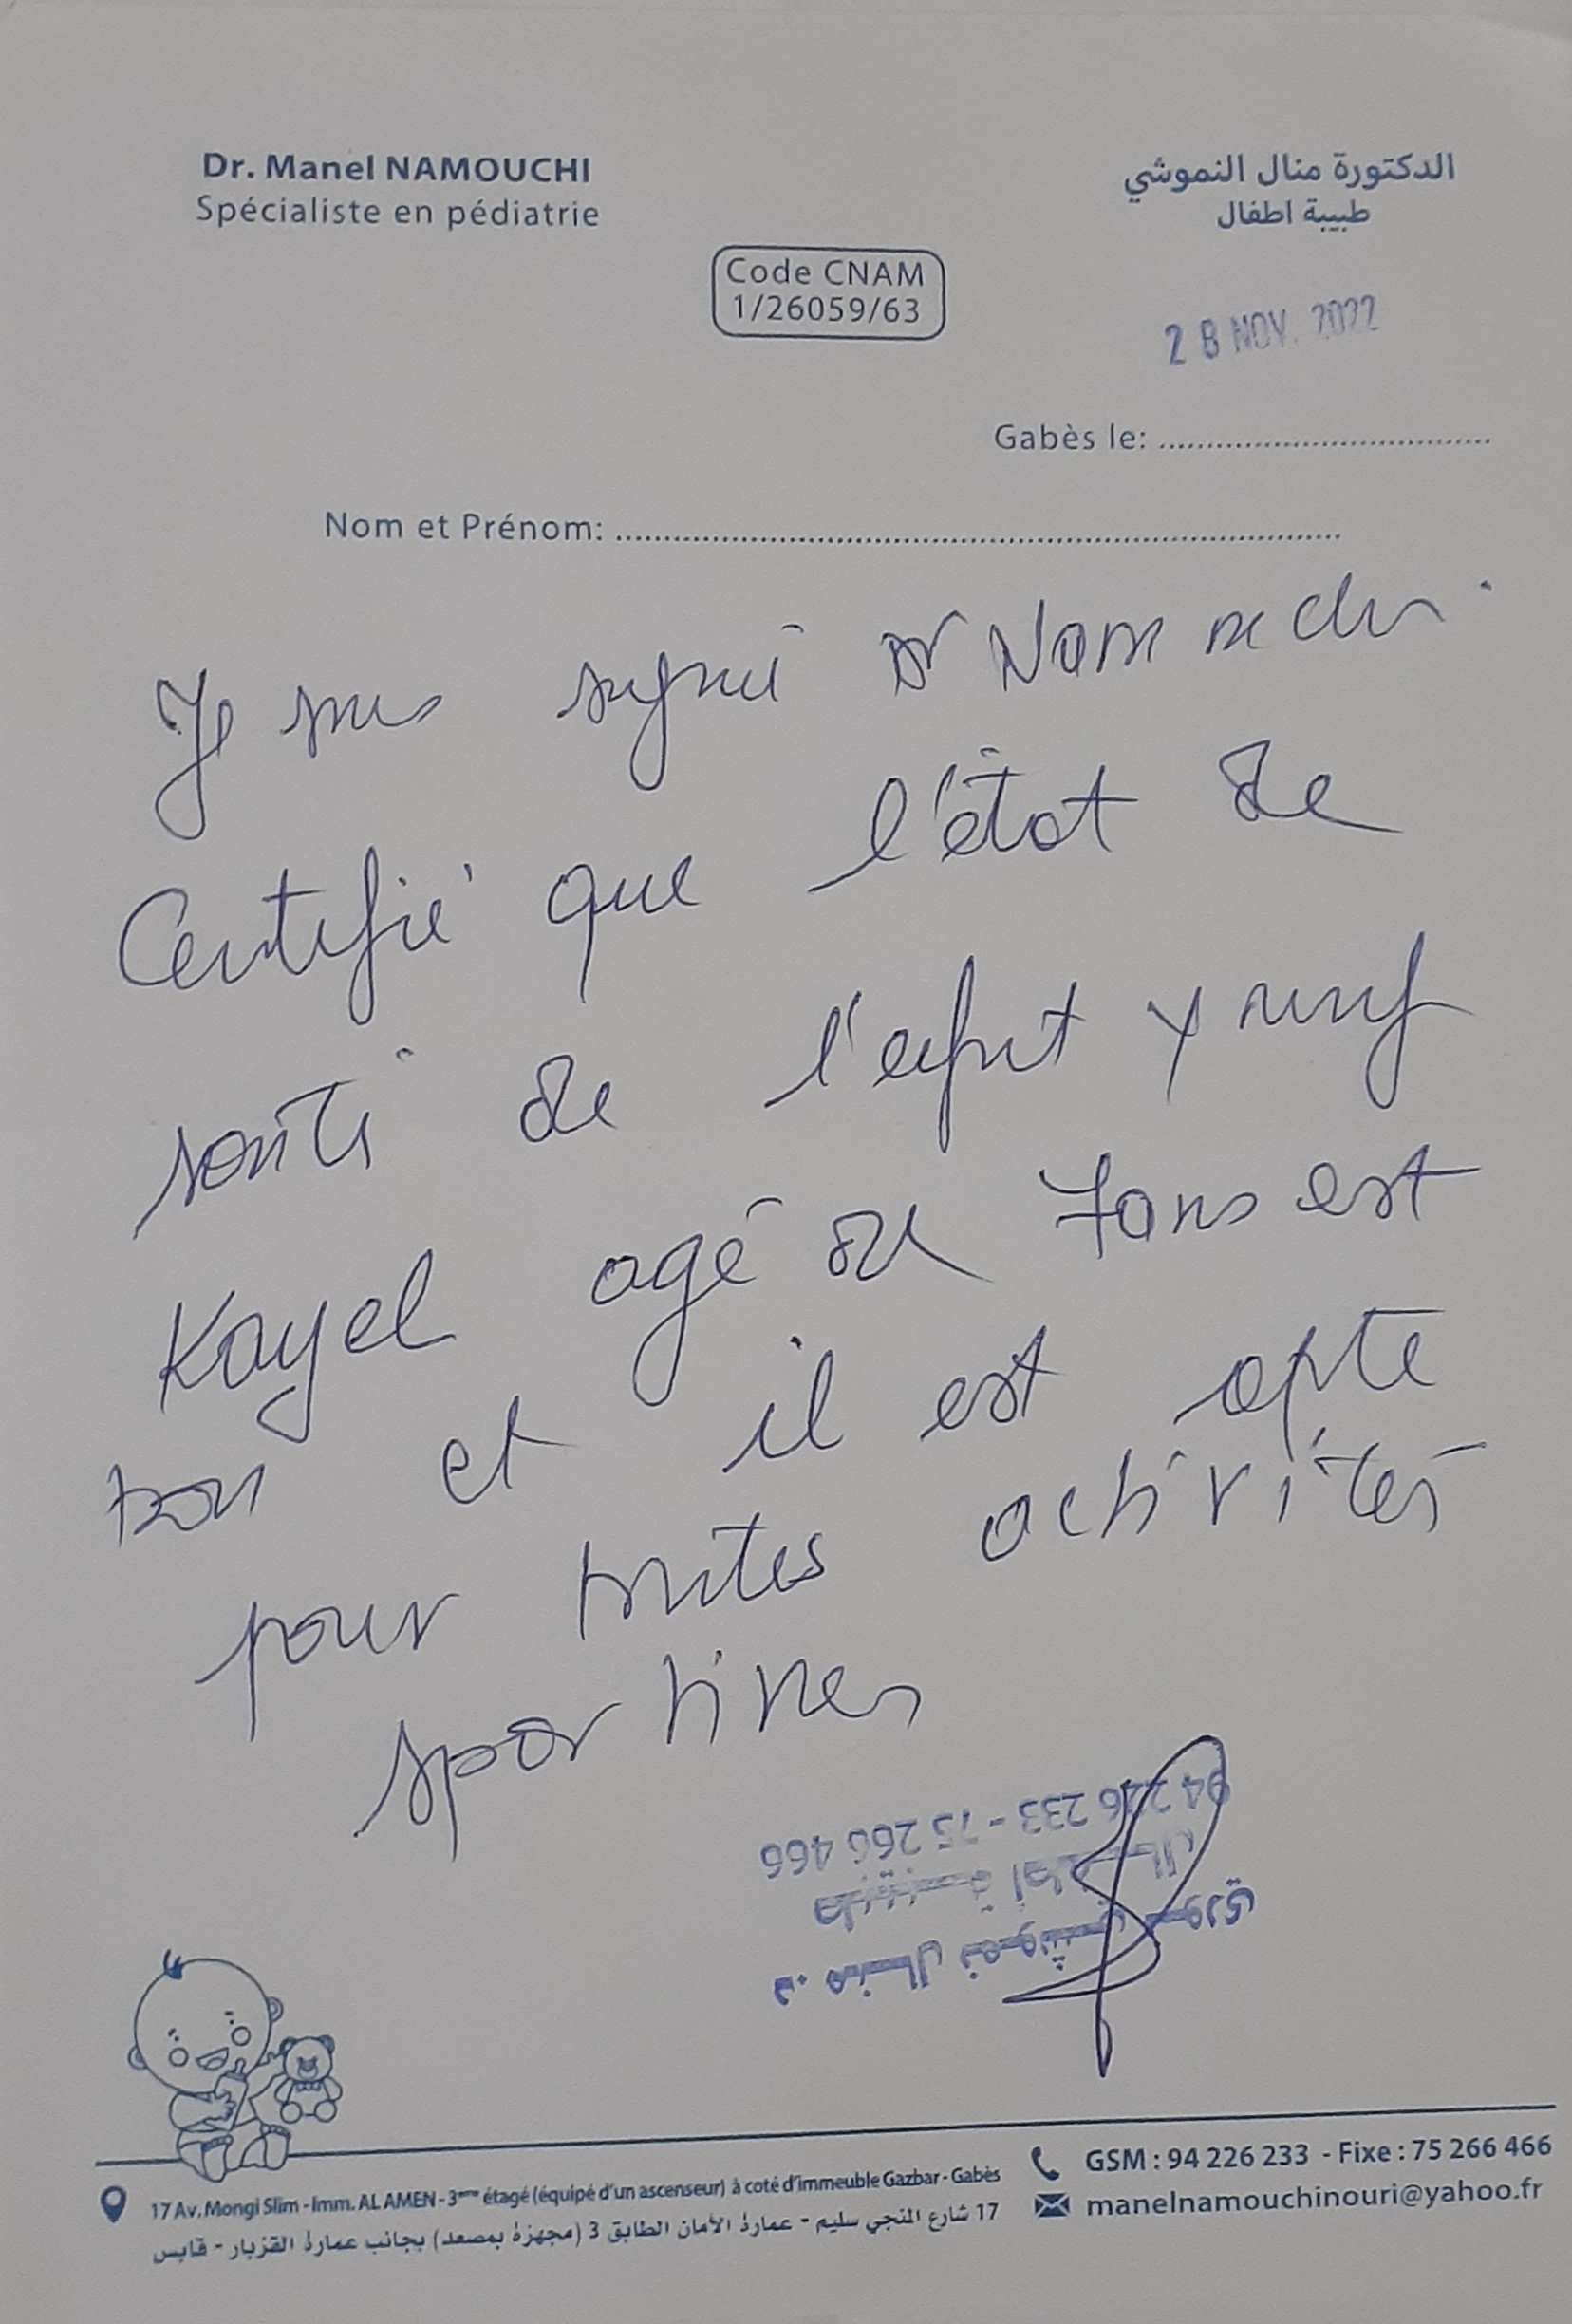 Dr. Manel NAMOUCHI
Spécialiste en pédiatrie
الدكتورة منال النموشي
طبيبة اطفال
Code CNAM
1/26059/63
28 NOV. 2022
Gabès le:
Nom et Prénom:
Je sous signé Dr Namouchi
Certifié que l'état de
santé de l'enfant Yousuf
Kayel agé de 7 ans est
bon et il est apte
pour toutes activités
sportives
94 226 233 - 75 266 466
طبيبة أطفال
د. منال نموشي نوري
17 Av. Mongi Slim - Imm. AL AMEN - 3ème étagé (équipé d'un ascenseur) à coté d'immeuble Gazbar - Gabès
17 شارع المنجي سليم - عمارة الأمان الطابق 3 (مجهزة بمصعد) بجانب عمارة القزبار - قابس
GSM : 94 226 233 - Fixe : 75 266 466
manelnamouchinouri@yahoo.fr